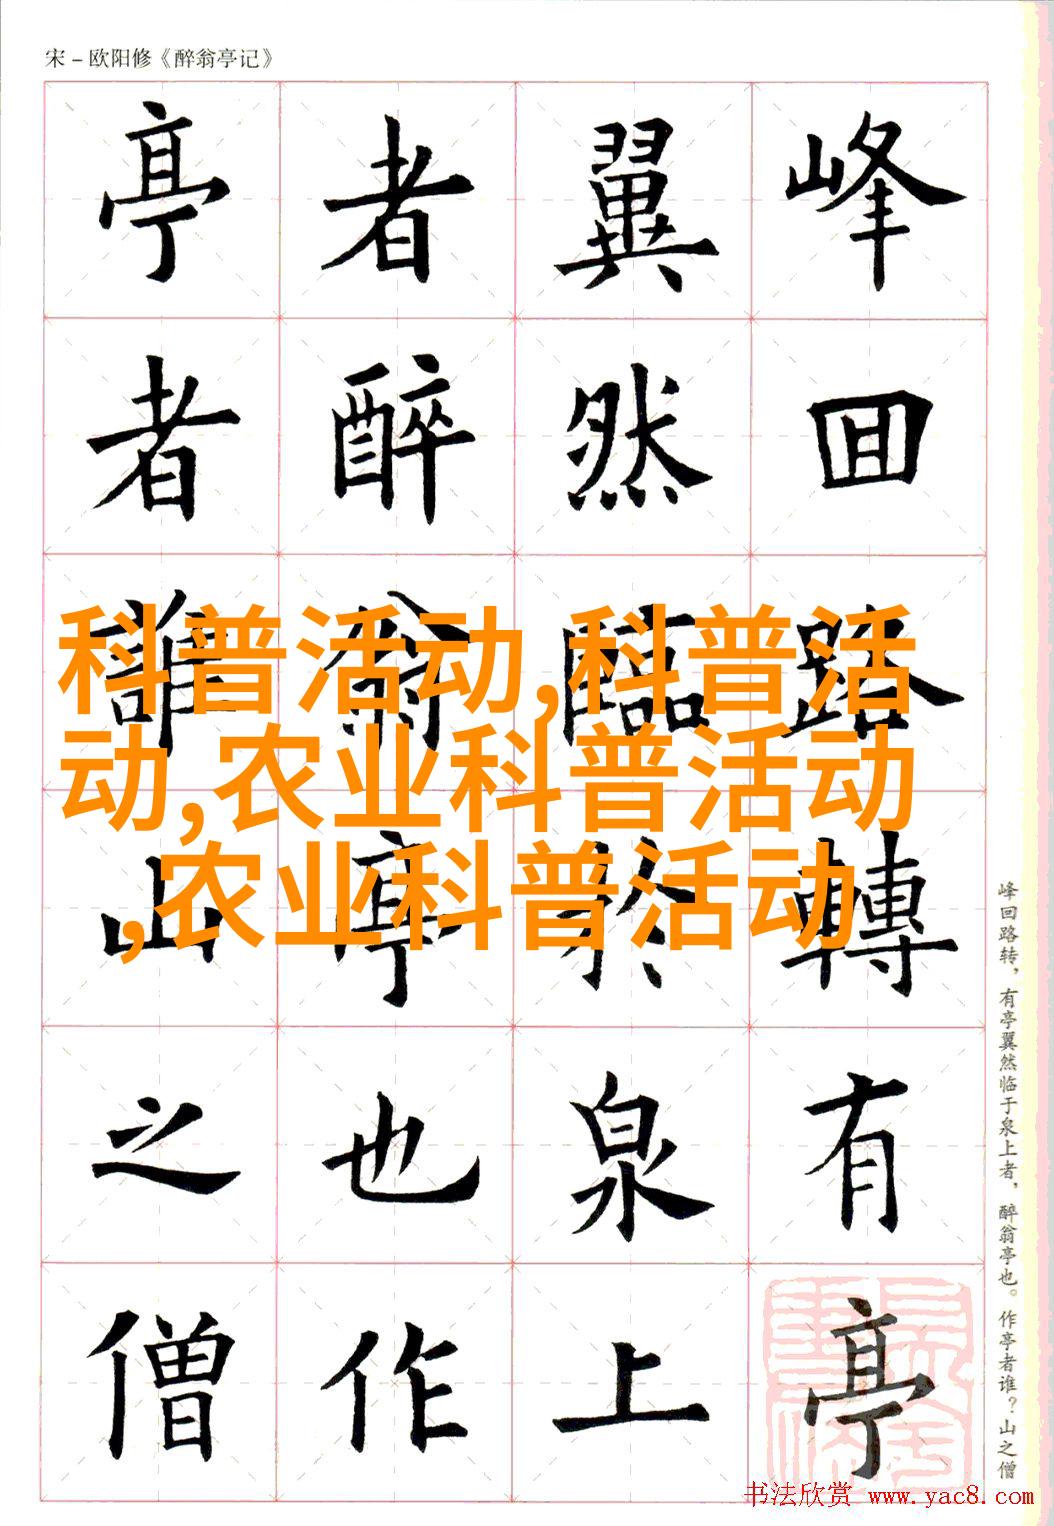 宋－欧阳修《醉翁亭记》
峰回路轉有亭
翼然臨於泉上
者醉翁亭也作
亭者誰山之僧
科普活动,科普活
动,农业科普活动
,农业科普活动
峰回路转，有亭翼然临于泉上者，醉翁亭也。作亭者谁？山之僧
书法欣赏 www.yac8.com